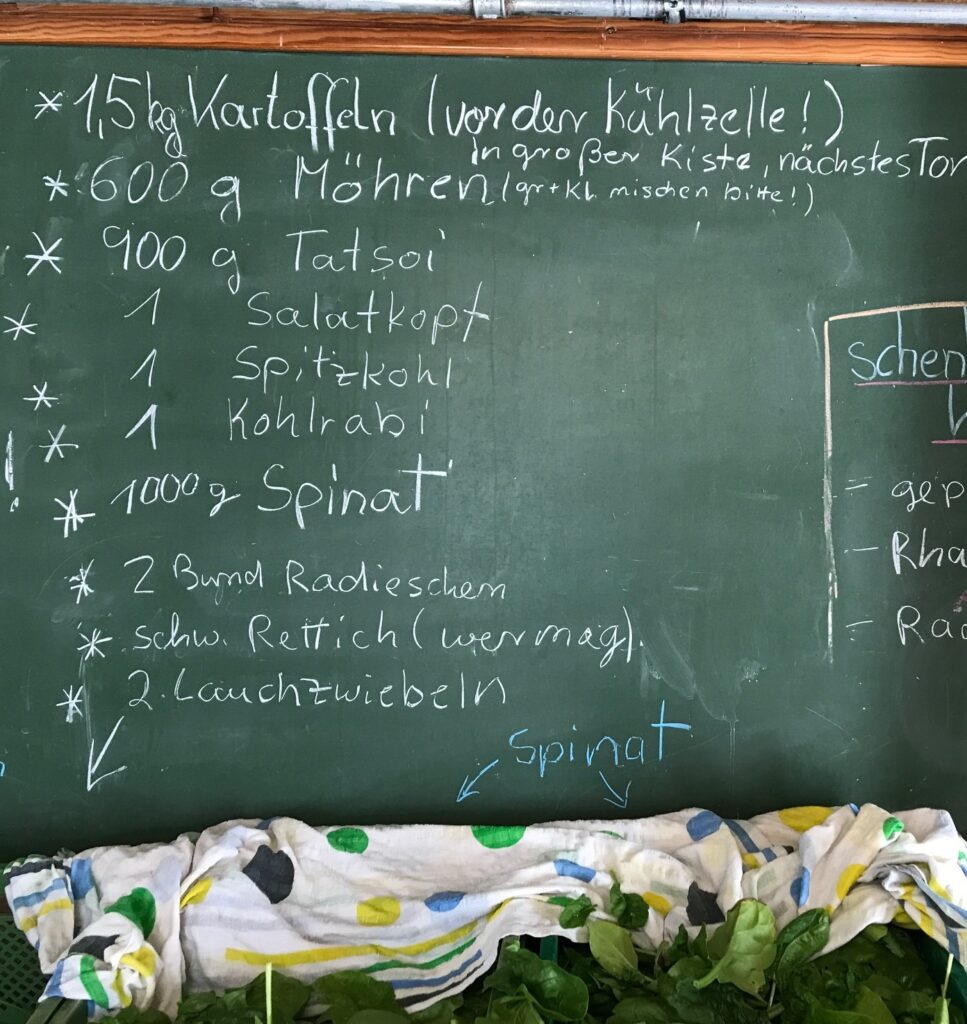 * 1,5kg Kartoffeln (vor der Kühlzelle!)
in großer Kiste, nächstes Tor
* 600 g Möhren (gr+kl. mischen bitte!)
* 900 g Tatsoi
* 1 Salatkopf
* 1 Spitzkohl
* 1 Kohlrabi
* 1000 g Spinat
* 2 Bund Radieschen
* schw. Rettich (wer mag).
* 2 Lauchzwiebeln
Spinat
schen
= gep
- Rha
= Rad
!